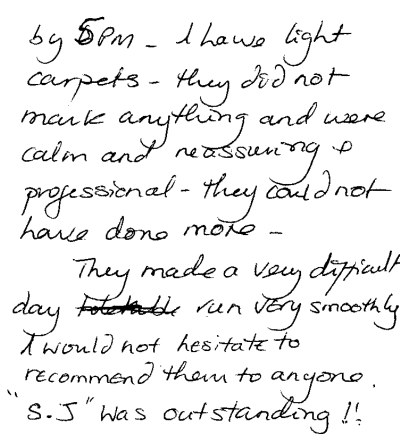 by 5PM - I have light
carpets - they did not
mark anything and were
calm and reassuring &
professional - they could not
have done more -
They made a very difficult
day run very smoothly
I would not hesitate to
recommend them to anyone.
"S.J" was outstanding !!